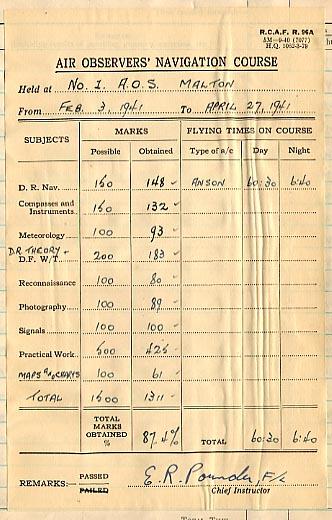 R.C.A.F. R. 96A
5M—9-40 (7077)
H.Q. 1062-3-79
AIR OBSERVERS' NAVIGATION COURSE
Held at No. 1. A.O.S. MALTON
From FEB. 3, 1941 To APRIL 27, 1941
SUBJECTS MARKS FLYING TIMES ON COURSE
Possible Obtained Type of a/c Day Night
D. R. Nav. 150 148 ANSON 60:30 6:40
Compasses and
Instruments 150 132
Meteorology 100 93
D.R. THEORY +
D.F. W/T. 200 183
Reconnaissance 100 80
Photography 100 89
Signals 100 100
Practical Work 500 425
MAPS AND CHARTS 100 61
TOTAL 1500 1311
TOTAL
MARKS
OBTAINED
% 87.4% TOTAL 60:30 6:40
REMARKS: PASSED
FAILED
E.R. Pounder F/L
Chief Instructor